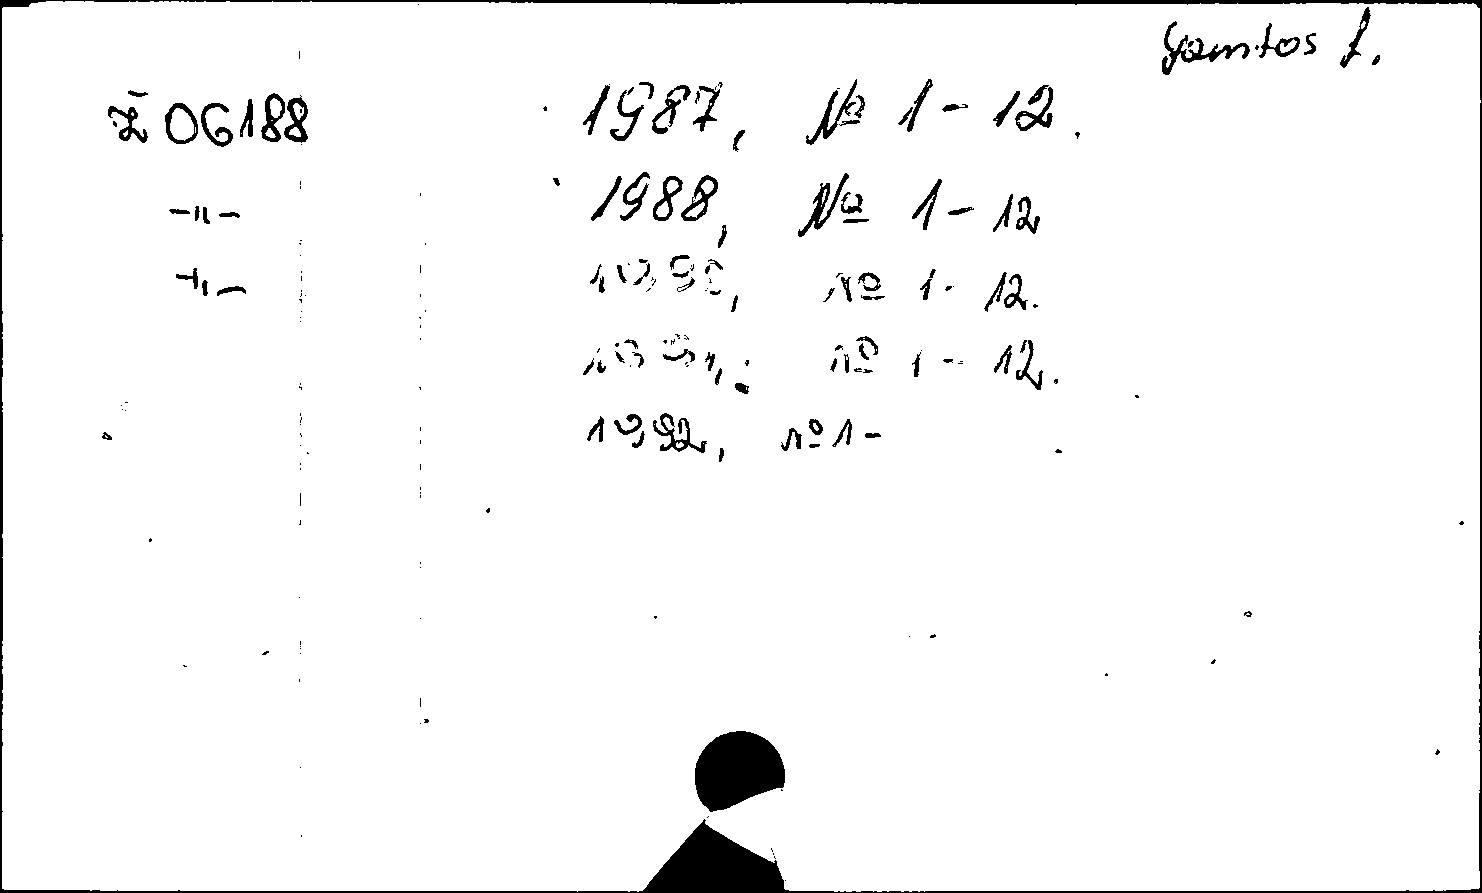 Gamtos f.
Ž 06188 1987, № 1-12.
-"- 1988, № 1-12
-"- 1990, № 1-12.
1991, № 1-12.
1992, № 1-